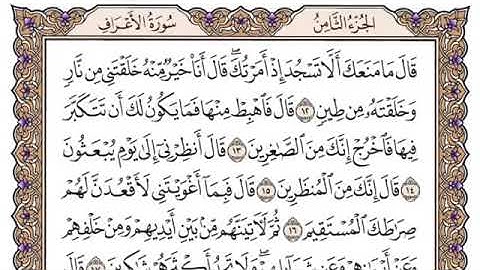 الجُزْءُ الثَّامِنُ سُورَةُ الأَعْرَافِ
قَالَ مَا مَنَعَكَ أَلَّا تَسْجُدَ إِذْ أَمَرْتُكَ ۖ قَالَ أَنَا۠ خَيْرٌ مِّنْهُ خَلَقْتَنِى مِن نَّارٍ
وَخَلَقْتَهُۥ مِن طِينٍ ١٢ قَالَ فَٱهْبِطْ مِنْهَا فَمَا يَكُونُ لَكَ أَن تَتَكَبَّرَ
فِيهَا فَٱخْرُجْ إِنَّكَ مِنَ ٱلصَّٰغِرِينَ ١٣ قَالَ أَنظِرْنِىٓ إِلَىٰ يَوْمِ يُبْعَثُونَ
١٤ قَالَ إِنَّكَ مِنَ ٱلْمُنظَرِينَ ١٥ قَالَ فَبِمَآ أَغْوَيْتَنِى لَأَقْعُدَنَّ لَهُمْ
صِرَٰطَكَ ٱلْمُسْتَقِيمَ ١٦ ثُمَّ لَءَاتِيَنَّهُم مِّنۢ بَيْنِ أَيْدِيهِمْ وَمِنْ خَلْفِهِمْ
وَعَنْ أَيْمَٰنِهِمْ وَعَن شَمَآئِلِهِمْ ۖ وَلَا تَجِدُ أَكْثَرَهُمْ شَٰكِرِينَ ١٧ قَالَ